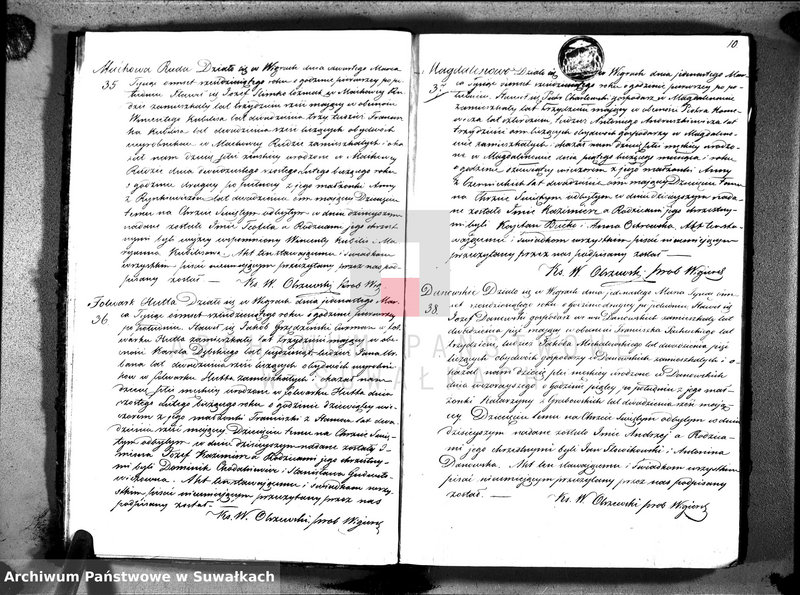 Muchowa Ruda Działo się w Wigrach dnia czwartego Marca
35 Tysiąc ośmset sześćdziesiątego roku o godzinie pierwszej po po-
łudniu Stawił się Józef
lat trzydzieści sześć mający w obecności
Wincentego Kubilisa lat dwadzieścia trzy tudzież Francisz-
ka Kubilisa lat dwadzieścia sześć liczących obydwóch
wyrobników w Muchowy Rudzie zamieszkałych i oka-
zał nam dziecię płci żeńskiej urodzone w Muchowy
Rudzie dnia dwudziestego szóstego Lutego bieżącego roku
o godzinie drugiej po północy z jego małżonki Anny
z Rynkiewiczów lat dwadzieścia ośm mającej Dziecięciu
temu na Chrzcie Świętym odbytym w dniu dzisiejszym
nadane zostało Imie Teofila a Rodzicami jego chrzest-
nymi byli wyżej wspomniony Wincenty Kubilis i Ma-
ryanna Kubilisowa. Akt ten stawającemu i świadkom
wszystkim pisać nieumiejącym przeczytany przez nas pod-
pisany został —
Ks. W. Olszewski prob Wig
Folwark Hutta Działo się w Wigrach dnia jedenastego Mar-
36 ca Tysiąc ośmset sześćdziesiątego roku o godzinie pierwszej
po południu Stawił się Jakób Grzędziński w fol-
warku Hutta zamieszkały lat trzydzieści mający w obe-
cności Karola Dębskiego lat pięćdziesiąt tudzież Jana Ur-
bana lat dwadzieścia sześć liczących obydwóch wyrobni-
ków w folwarku Hutta zamieszkałych i okazał nam
dziecię płci męskiej urodzone w folwarku Hutta dnia
szóstego Lutego bieżącego roku o godzinie dziewiątej wie-
czorem z jego małżonki Franciszki z lat dwa-
dzieścia sześć mającej Dziecięciu temu na Chrzcie Świę-
tym odbytym w dniu dzisiejszym nadane zostały I-
miona Józef Kazimierz a Rodzicami jego chrzestny-
mi byli Dominik i Stanisława
Akt ten stawającemu i świadkom wszy-
stkim pisać nieumiejącym przeczytany przez nas
podpisany został —
Ks. W. Olszewski prob Wigiersk
10
Magdalenowo Działo się w Wigrach dnia jedenastego Mar-
37 ca Tysiąc ośmset sześćdziesiątego roku o godzinie pierwszej po po-
łudniu Stawił się Piotr gospodarz w Magdalenowie
zamieszkały lat trzydzieści mający w obecności Piotra
lat czterdzieści tudzież Antoniego lat
trzydzieści ośm liczących obydwóch gospodarzy w Magdaleno-
wie zamieszkałych i okazał nam dziecię płci męskiej urodzo-
ne w Magdalenowie dnia piątego bieżącego miesiąca i roku
o godzinie ósmej wieczorem z jego małżonki Anny
z lat dwadzieścia ośm mającej Dziecięciu temu
na Chrzcie Świętym odbytym w dniu dzisiejszym nada-
ne zostało Imie Kazimierz a Rodzicami jego chrzestny-
mi byli Kajetan i Anna Ostrowska. Akt ten sta-
wającemu i świadkom wszystkim pisać nieumiejącym
przeczytany przez nas podpisany został —
Ks. W. Olszewski prob Wigiersk
Danowskie Działo się w Wigrach dnia jedenastego Marca Tysiąc ośm-
38. set sześćdziesiątego roku o godzinie drugiej po południu Stawił się
Józef Danowski gospodarz we wsi Danowskich zamieszkały lat
dwadzieścia pięć mający w obecności Franciszka lat
trzydzieści, tudzież Jakóba Michalewskiego lat dwadzieścia pięć
liczących obydwóch gospodarzy w Danowskich zamieszkałych i o-
kazał nam dziecię płci męskiej urodzone w Danowskich
dnia wczorajszego o godzinie piątej po południu z jego mał-
żonki Katarzyny z Grabowskich lat dwadzieścia sześć mają-
cej Dziecięciu temu na Chrzcie Świętym odbytym w dniu
dzisiejszym nadane zostało Imie Andrzej a Rodzica-
mi jego chrzestnymi byli Jan Słowikowski i Antonina
Danowska. Akt ten stawającemu i świadkom wszystkim
pisać nieumiejącym przeczytany przez nas podpisany
został. —
Ks. W. Olszewski prob Wigiersk
Archiwum Państwowe w Suwałkach